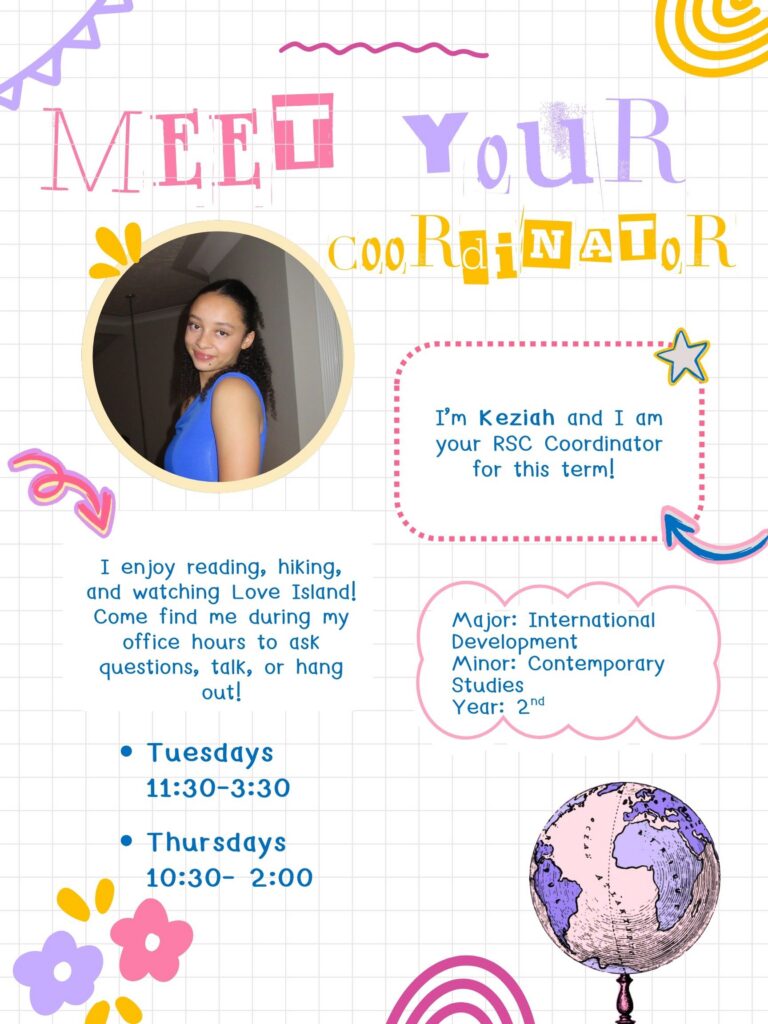 MEET YOUR
COORdiNATOR
I'm Keziah and I am
your RSC Coordinator
for this term!
I enjoy reading, hiking,
and watching Love Island!
Come find me during my
office hours to ask
questions, talk, or hang
out!
Major: International
Development
Minor: Contemporary
Studies
Year: 2nd
• Tuesdays
11:30-3:30
• Thursdays
10:30- 2:00